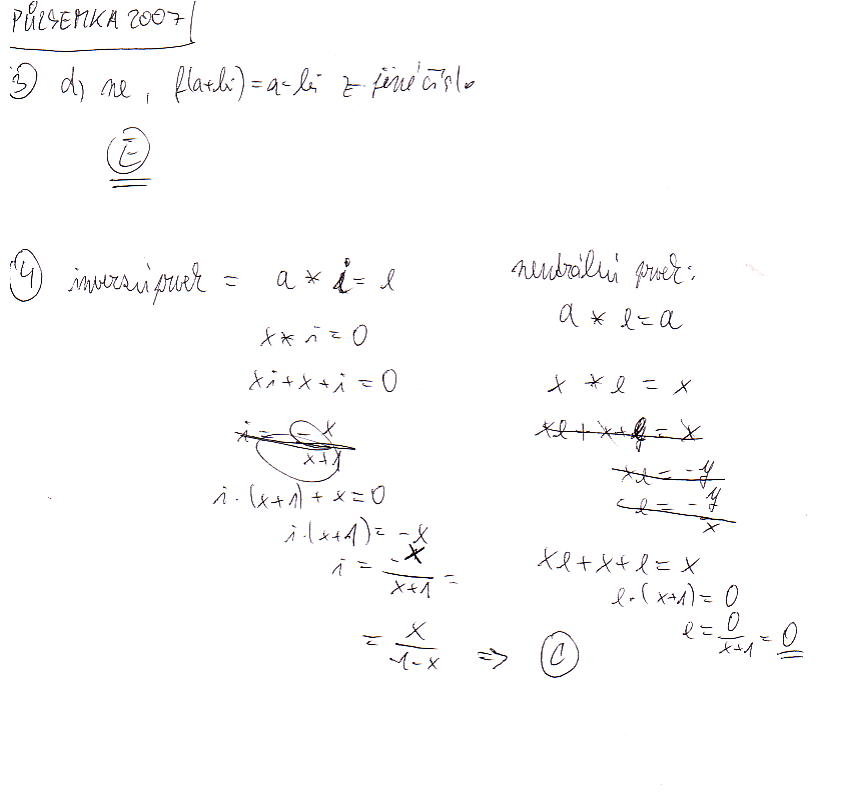 PŮLSEMKA 2007
3) d) ne, f(a+bi) = a-bi z jiné číslo
E
4) inverzní prvek = a * i = e
x * i = 0
xi + x + i = 0
i = -x/(x+1)
i·(x+1) + x = 0
i·(x+1) = -x
i = -x/(x+1) =
= x/(-1-x) ⇒ C
neutrální prvek:
a * e = a
x * e = x
xe + x + y = x
xe = -y
e = -y/x
xe + x + e = x
e·(x+1) = 0
e = 0/(x+1) = 0